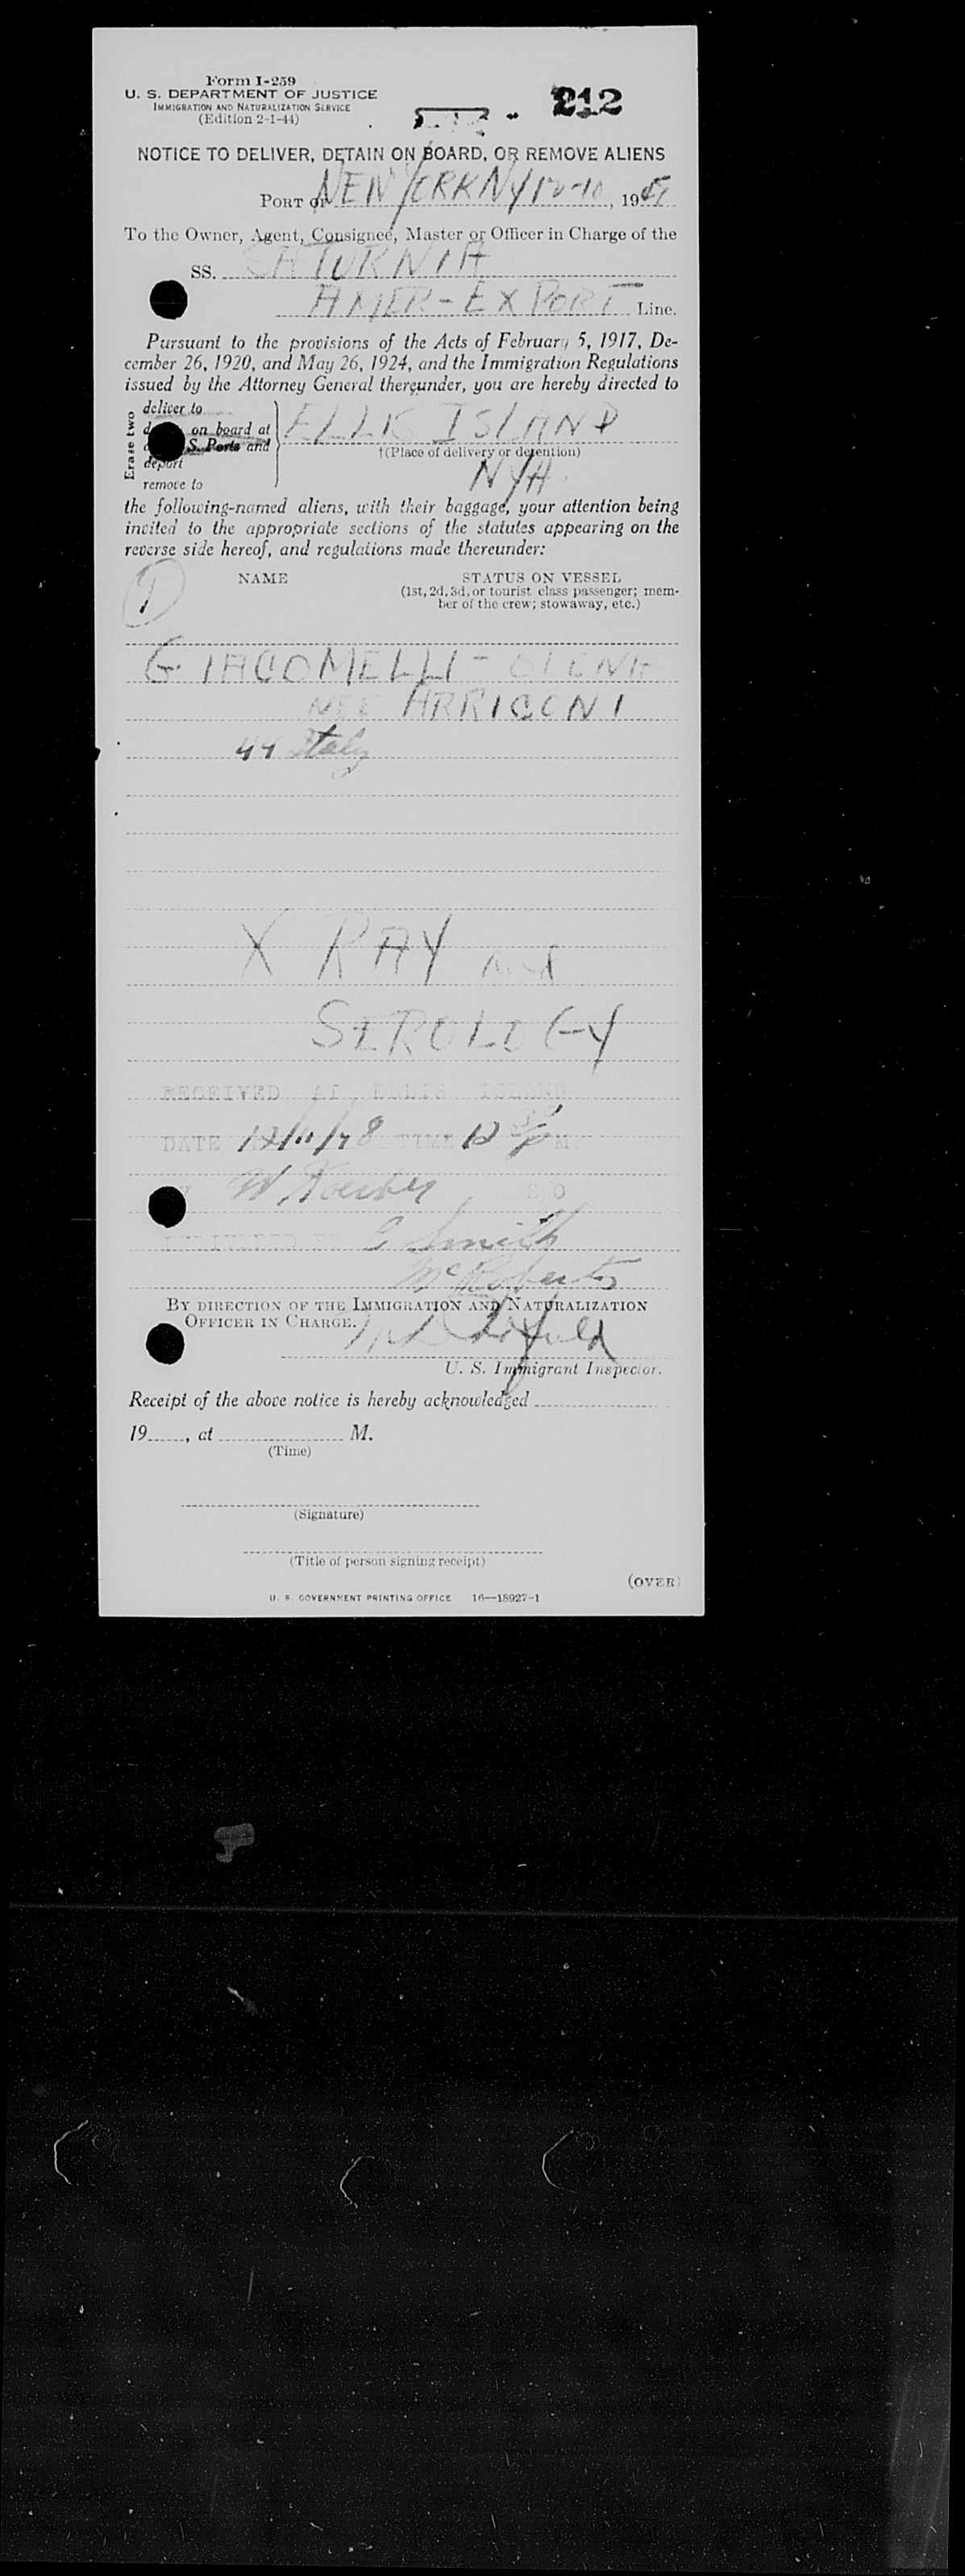 Form I-259
U. S. DEPARTMENT OF JUSTICE
IMMIGRATION AND NATURALIZATION SERVICE
(Edition 2-1-44)
212
NOTICE TO DELIVER, DETAIN ON BOARD, OR REMOVE ALIENS
PORT OF NEW YORK NY 12-10, 19
To the Owner, Agent, Consignee, Master or Officer in Charge of the
SS. SATURNIA
AMER-EXPORT Line.
Pursuant to the provisions of the Acts of February 5, 1917, De-
cember 26, 1920, and May 26, 1924, and the Immigration Regulations
issued by the Attorney General thereunder, you are hereby directed to
Erase two
deliver to
on board at
S. Ports and
deport
remove to
ELLIS ISLAND
†(Place of delivery or detention)
NYH
the following-named aliens, with their baggage, your attention being
invited to the appropriate sections of the statutes appearing on the
reverse side hereof, and regulations made thereunder:
1
NAME
STATUS ON VESSEL
(1st, 2d, 3d, or tourist class passenger; mem-
ber of the crew; stowaway, etc.)
GIACOMELLI -
NEE ARRIGONI
44 Italy
X RAY and
SEROLOGY
RECEIVED AT ELLIS ISLAND
DATE 12/11/48 TIME 12 PM
W
DELIVERED BY E Smith
McRoberts
BY DIRECTION OF THE IMMIGRATION AND NATURALIZATION
OFFICER IN CHARGE.
U. S. Immigrant Inspector.
Receipt of the above notice is hereby acknowledged
19, at M.
(Time)
(Signature)
(Title of person signing receipt)
(OVER)
U. S. GOVERNMENT PRINTING OFFICE 16—18927-1